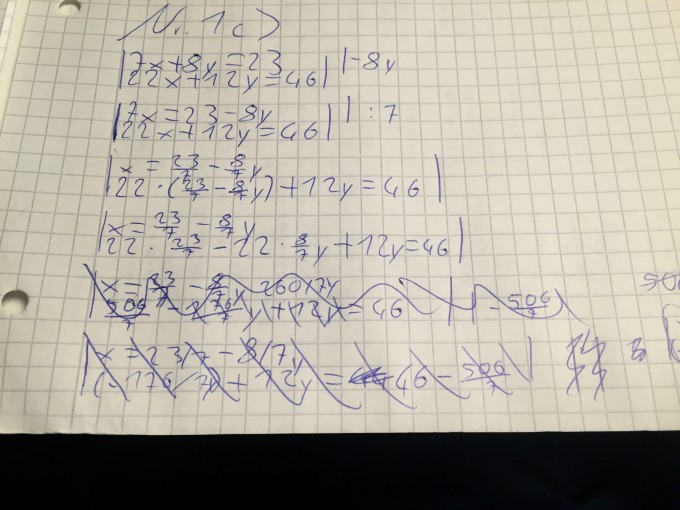 Nr. 1c)
|7x+8y=23
22x+12y=46| |-8y
|7x=23-8y
22x+12y=46| |:7
|x=23/7-8/7y
22·(23/7-8/7y)+12y=46|
|x=23/7-8/7y
22·23/7-22·8/7y+12y=46|
|x=23/7-8/7
506/7-176/7y+12y=46 | |-506/7
|x=23/7-8/7y
(-176/7)+12y=46-506/7|